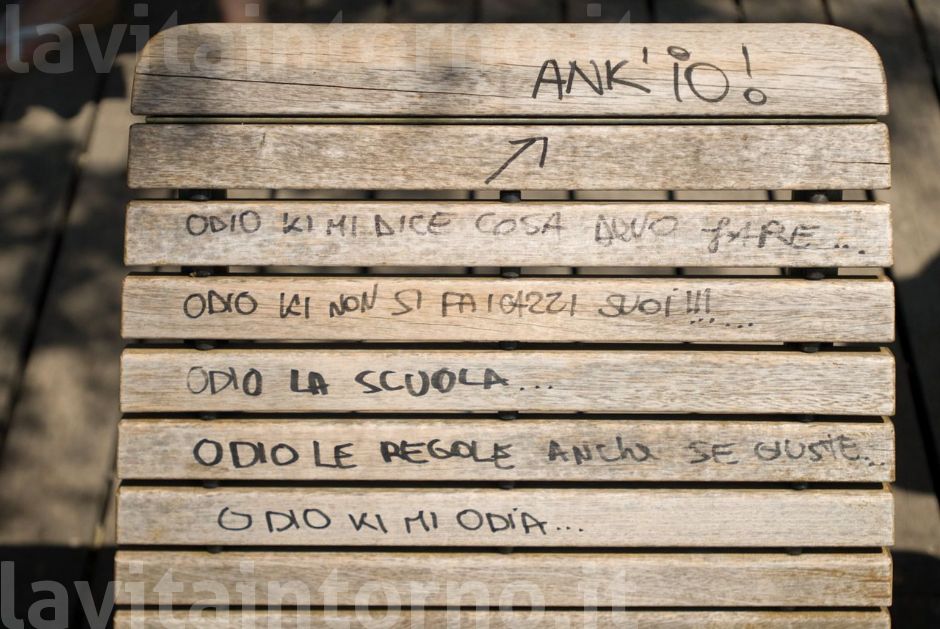 lavitaintorno.it
ANK'iO!
ODIO KI MI DICE COSA DEVO FARE...
ODIO KI NON SI FA I GAZZI SUOI!!!...
ODIO LA SCUOLA...
ODIO LE REGOLE ANCHE SE GIUSTE...
ODIO KI MI ODIA...
lavitaintorno.it